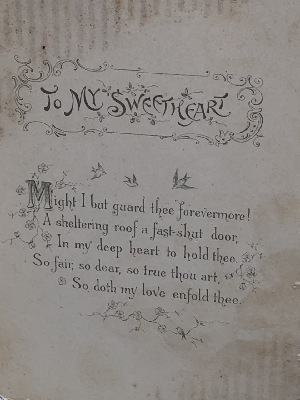 To My Sweetheart
Might I but guard thee forevermore!
A sheltering roof a fast-shut door,
In my deep heart to hold thee.
So fair, so dear, so true thou art,
So doth my love enfold thee.